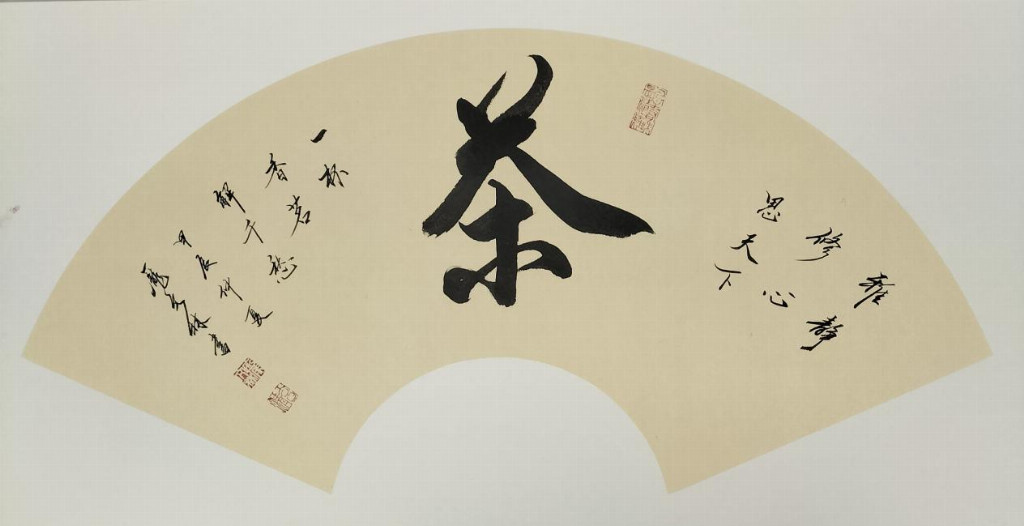 雅静
修心
思天下
茶
一杯
香茗
解千愁
甲辰仲夏